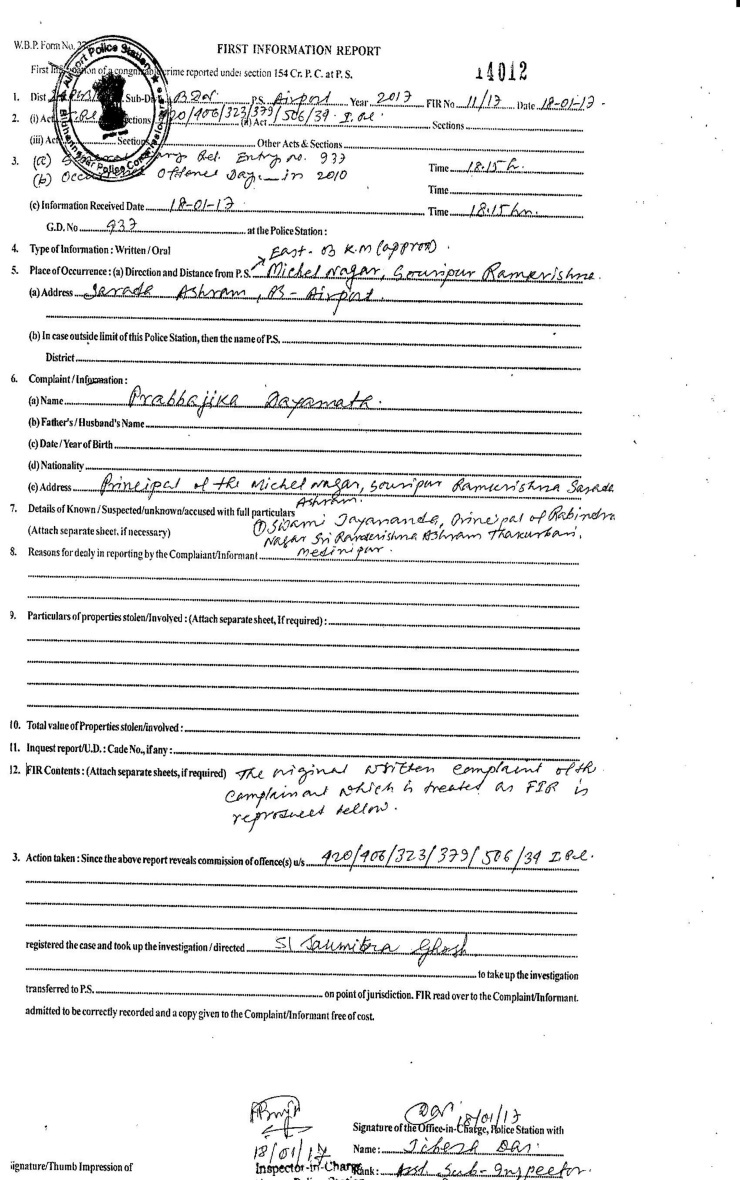 W.B.P. Form No. 2
FIRST INFORMATION REPORT
First Information of a congnizable crime reported under section 154 Cr. P. C. at P. S.
14012
Airport Police Station
Bidhannagar Police Commissionerate
1. Dist Sub-Div P.S. Airport Year 2017 FIR No 11/17 Date 18-01-17
2. (i) Act Sections 420/406/323/379/506/34 (ii) Act I.P.C. Sections
(iii) Act Sections Other Acts & Sections
3. (a) Ref. Entry no. 937 Time 18.15 h.
(b) Offence Day in 2010 Time
(c) Information Received Date 18-01-17 Time 18.15 hrs.
G.D. No 937 at the Police Station :
4. Type of Information : Written / Oral
East. 03 K.M (approx).
5. Place of Occurrence : (a) Direction and Distance from P.S. Michel Nagar, Souripur Ramkrishna
(a) Address Sarada Ashram, PS - Airport.
(b) In case outside limit of this Police Station, then the name of P.S.
District
6. Complaint / Information :
(a) Name Prabbajika Dayamath.
(b) Father's / Husband's Name
(c) Date / Year of Birth
(d) Nationality
(e) Address Principal of the Michel Nagar, Souripur Ramkrishna Sarada
Ashram.
7. Details of Known / Suspected/unknown/accused with full particulars
① Swami Jayananda, Principal of Rabindra
(Attach separate sheet, if necessary) Nagar Sri Ramkrishna Ashram Thakurbari,
8. Reasons for dealy in reporting by the Complaiant/Informant Medinipur.
9. Particulars of properties stolen/Involved : (Attach separate sheet, If required) :
10. Total value of Properties stolen/involved :
11. Inquest report/U.D. : Cade No., if any :
12. FIR Contents : (Attach separate sheets, if required) The original written complaint of the
complainant which is treated as FIR is
reproduced bellow.
3. Action taken : Since the above report reveals commission of offence(s) u/s 420/406/323/379/506/34 I.P.C.
registered the case and took up the investigation / directed SI Saumitra Ghosh
to take up the investigation
transferred to P.S. on point of jurisdiction. FIR read over to the Complaint/Informant.
admitted to be correctly recorded and a copy given to the Complaint/Informant free of cost.
18/01/17
Signature of the Office-in-Charge, Police Station with
18/01/17
Name : Das.
ignature/Thumb Impression of
Inspector-in-Charge
Rank : Asst Sub-Inspector.